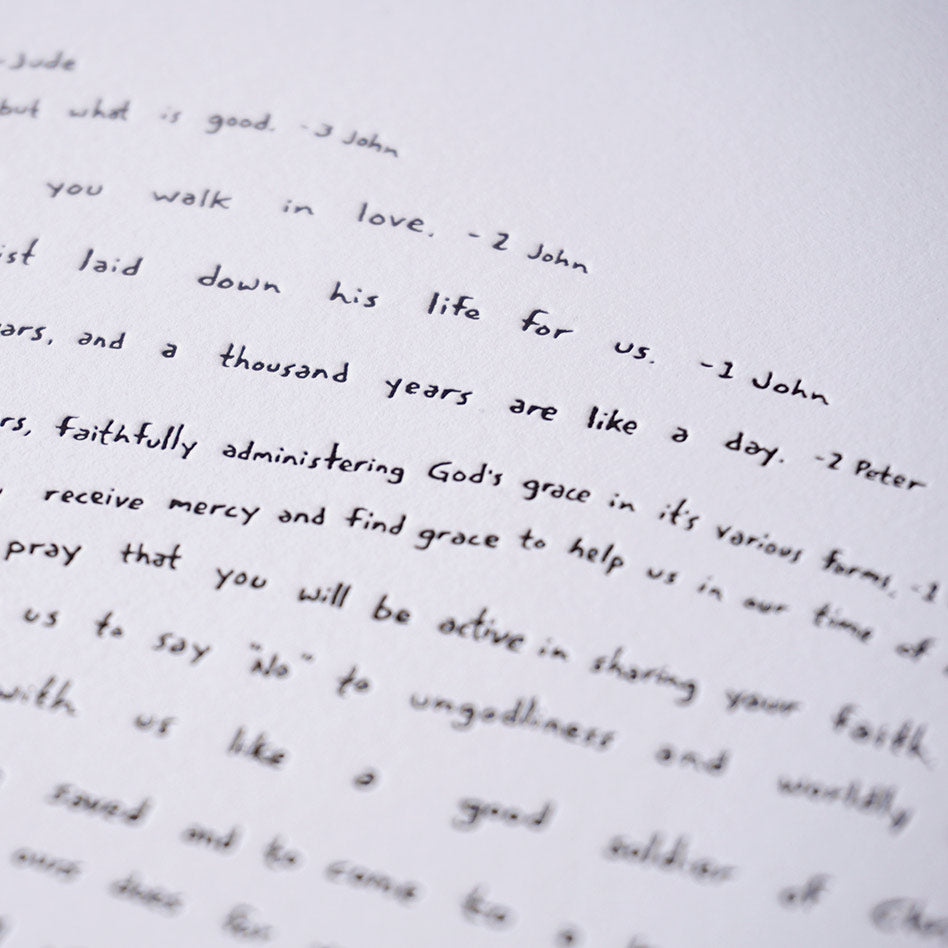 -Jude
but what is good. -3 John
you walk in love. -2 John
ist laid down his life for us. -1 John
ars, and a thousand years are like a day. -2 Peter
rs, faithfully administering God's grace in it's various forms. -1
receive mercy and find grace to help us in our time of
pray that you will be active in sharing your faith
us to say "No" to ungodliness and worldly
with us like a good soldier of Chri
saved and to come to a
ours does for